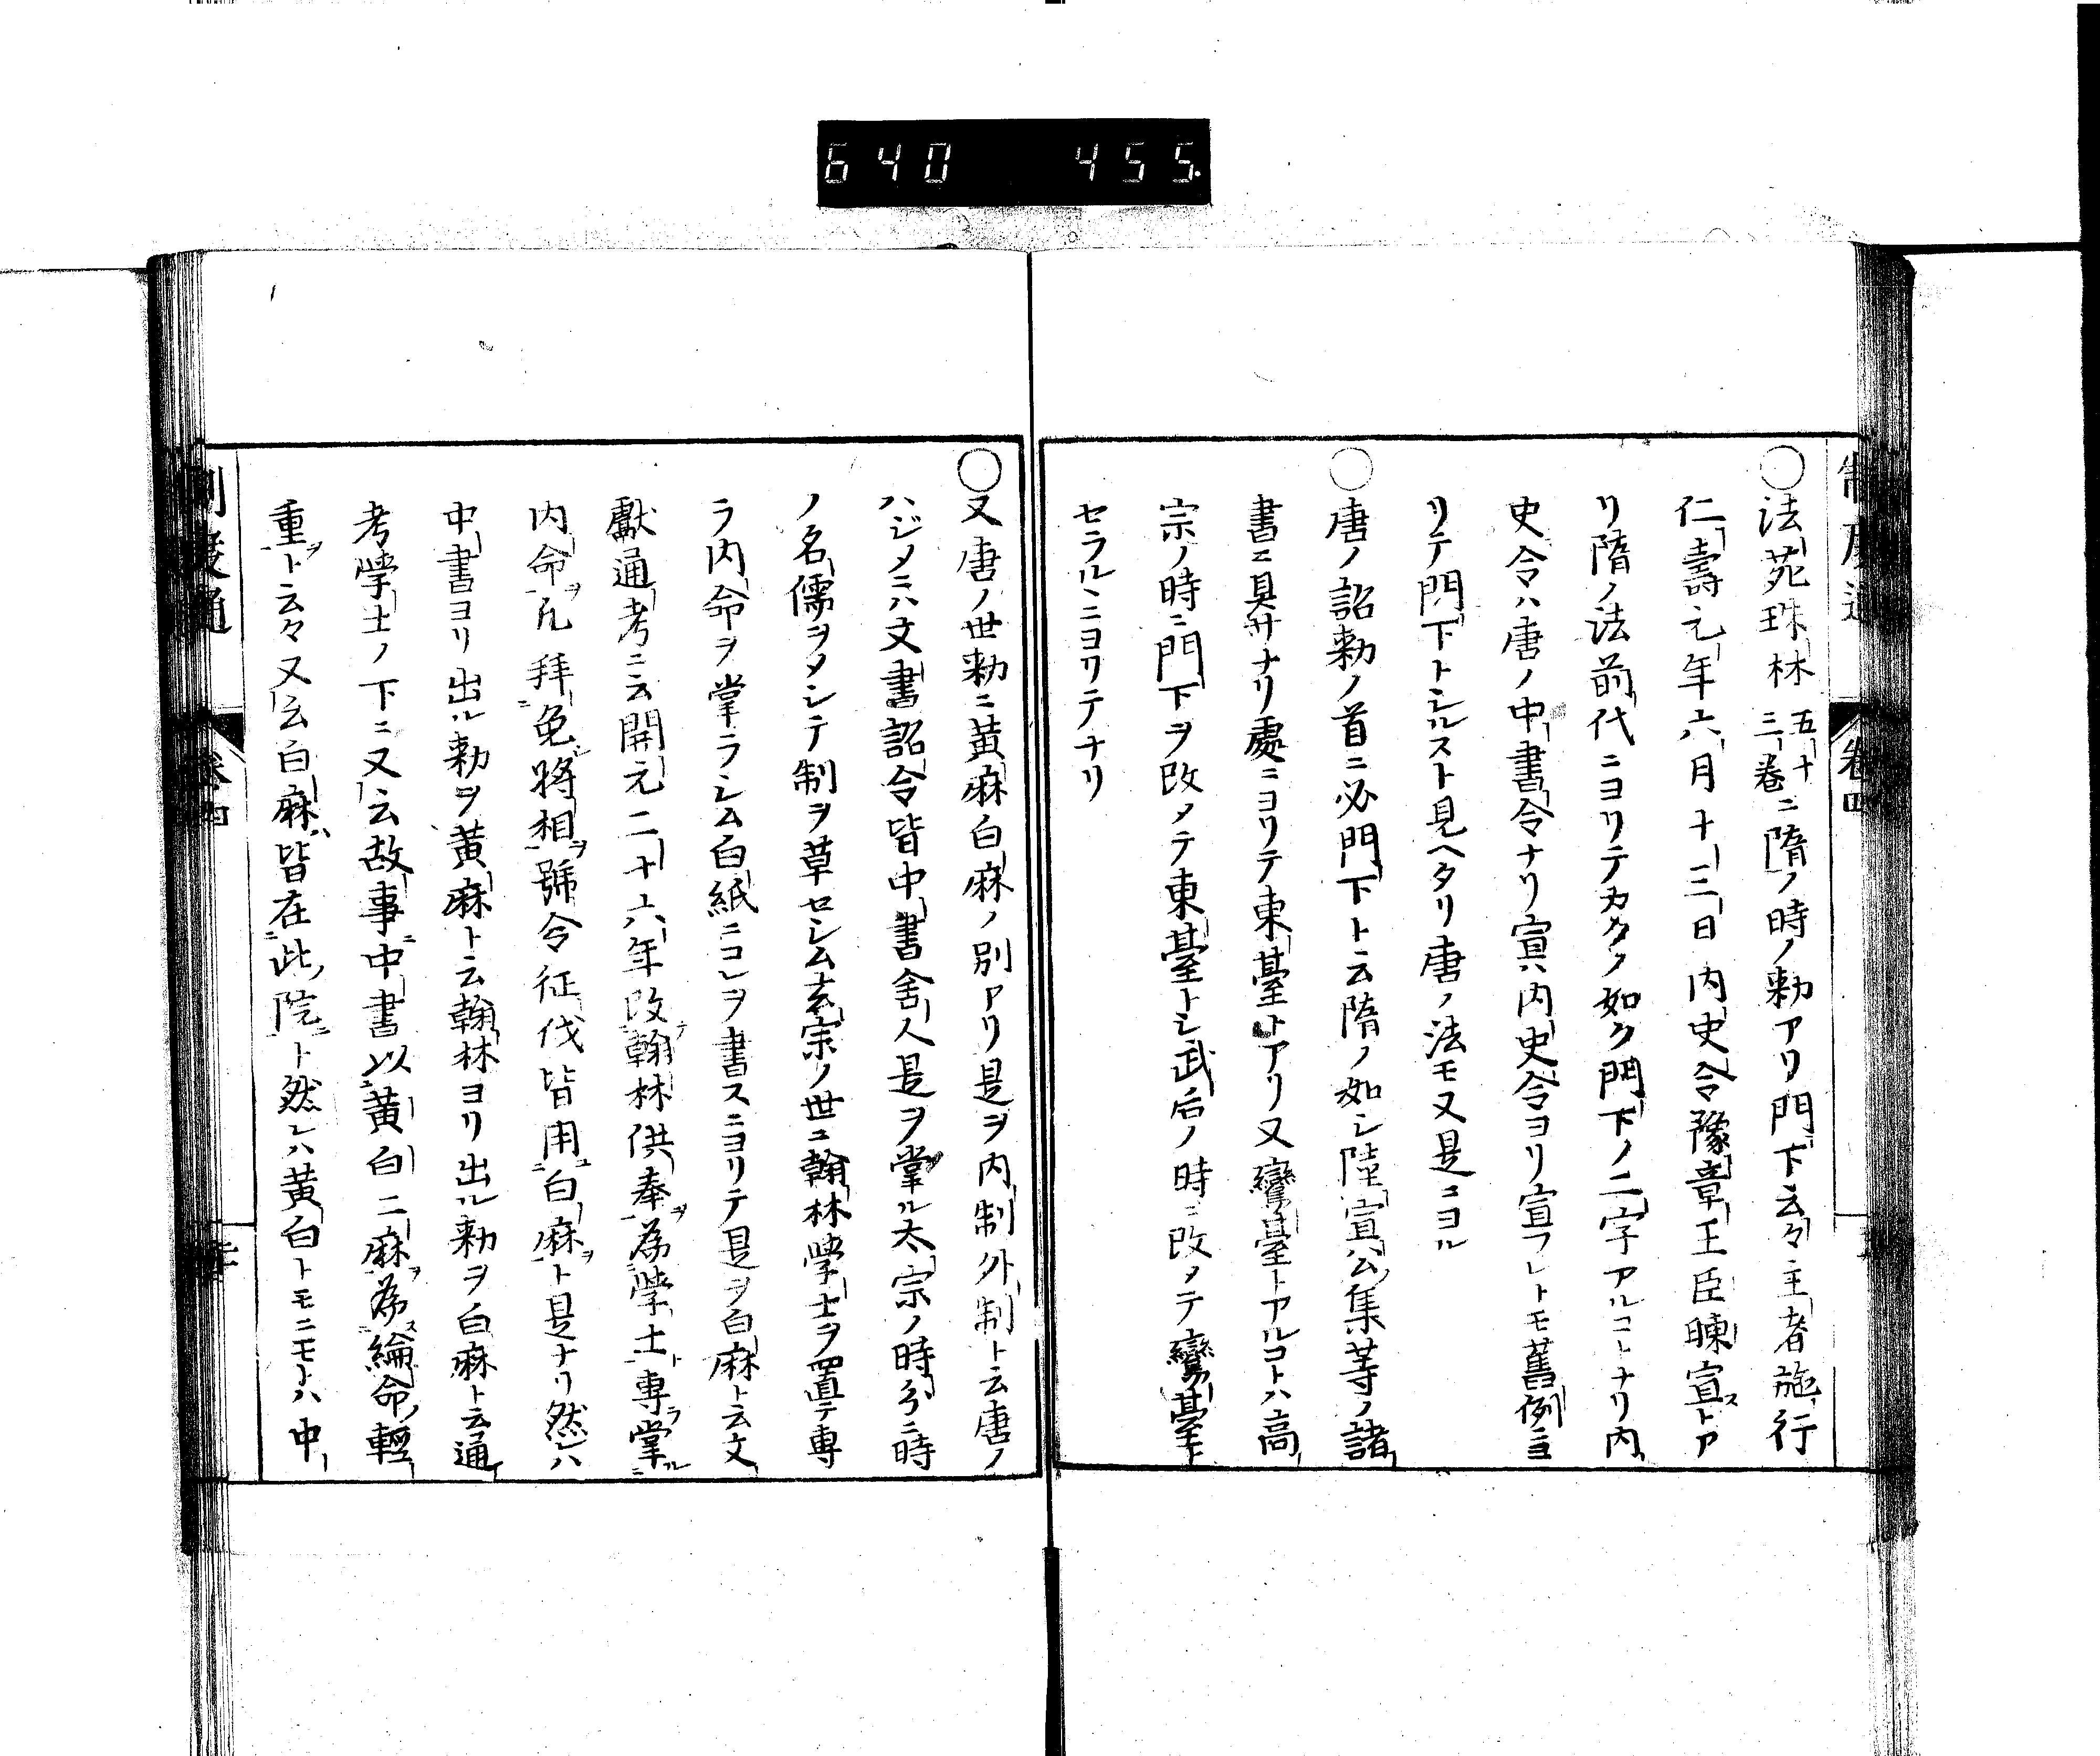 640 455.
制度通 卷四
○法苑珠林五十三卷ニ隋ノ時ノ勅アリ門下云々主者施行
仁壽元年六月十三日内史令豫章王臣暕宣ストア
リ隋ノ法前代ニヨリテカクノ如ク門下ノ二字アルコトナリ内
史令ハ唐ノ中書令ナリ寔ハ内史令ヨリ宣フレトモ舊例ニヨ
リテ門下トシルスト見ヘタリ唐ノ法モ又是ニヨル
○唐ノ詔勅ノ首ニ必門下ト云隋ノ如シ陸宣公集等ノ諸
書ニ具サナリ處ニヨリテ東臺トアリ又鸞臺トアルコトハ高
宗ノ時ニ門下ヲ改メテ東臺トシ武后ノ時ニ改メテ鸞臺ト
セラルヽニヨリテナリ
○又唐ノ世勅ニ黄麻白麻ノ別アリ是ヲ内制外制ト云唐ノ
ハジメニハ文書詔令皆中書舎人是ヲ掌ル太宗ノ時分ニ時
ノ名儒ヲメシテ制ヲ草セシム玄宗ノ世ニ翰林學士ヲ置テ専
ラ内命ヲ掌ラシム白紙ニコレヲ書スニヨリテ是ヲ白麻ト云文
獻通考ニ云開元二十六年改テ翰林供奉ヲ為學士ト専ラ掌ル
内命ヲ凡拜免將相ヲ號令征伐皆用ユ白麻ヲト是ナリ然レハ
中書ヨリ出ル勅ヲ黄麻ト云翰林ヨリ出ル勅ヲ白麻ト云通
考學士ノ下ニ又云故事ニ中書以黄白二麻ヲ為ス綸命ノ輕
重ヲト云々又云白麻ハ皆在此ノ院ニト然レハ黄白トモニモトハ中
制度通 卷四